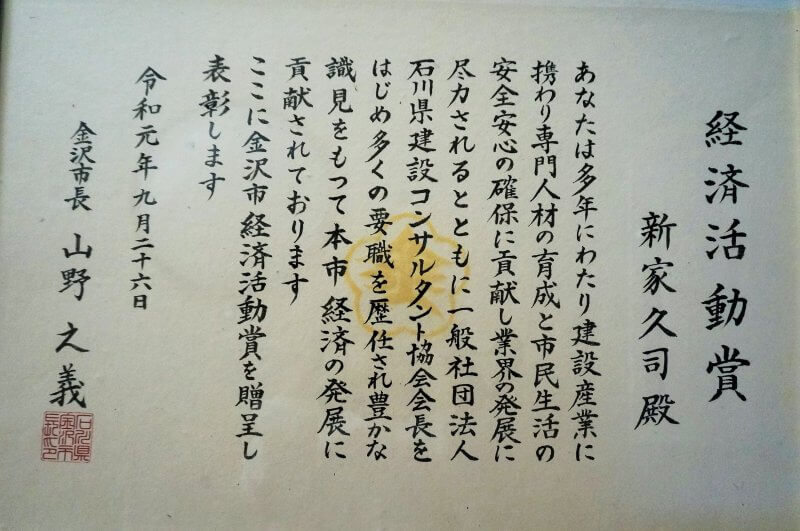 経済活動賞
新家久司殿
あなたは多年にわたり建設産業に
携わり専門人材の育成と市民生活の
安全安心の確保に貢献し業界の発展に
尽力されるとともに一般社団法人
石川県建設コンサルタント協会会長を
はじめ多くの要職を歴任され豊かな
識見をもって本市経済の発展に
貢献されております
ここに金沢市経済活動賞を贈呈し
表彰します
令和元年九月二十六日
金沢市長 山野之義
石川県
金沢市
長之印